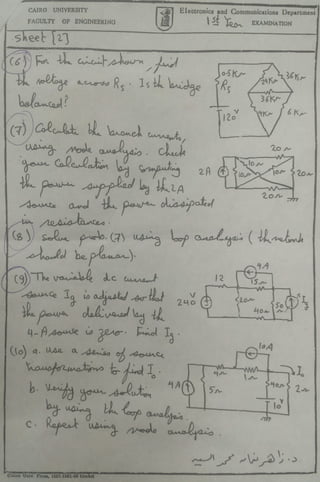 CAIRO UNIVERSITY
FACULTY OF ENGINEERING
Electronics and Communications Department
1st Year EXAMINATION
sheet [2]
(6) For the circuit shown, find
the voltage across R5. Is the bridge
balanced?
0.5K
R5
24K
36K
36K
9K
6K
120V
(7) Calculate the branch currents,
using node analysis. Check
your calculation by computing
the power supplied by the 2A
source and the power dissipated
in resistances.
20
10
10
10
20
2A
20
(8) solve prob.(7) using loop analysis (the network
should be planar).
(9) The variable dc current
source Ig is adjusted so that
the power delivered by the
4-A source is zero. Find Ig.
4A
12
15
240V
20
50
Ig
40
(10) a. use a series of source
transformations to find Io
b. Verify your solution
by using the loop analysis.
c. Repeat using node analysis.
10A
4
1
Io
4A
5
40
2
10V